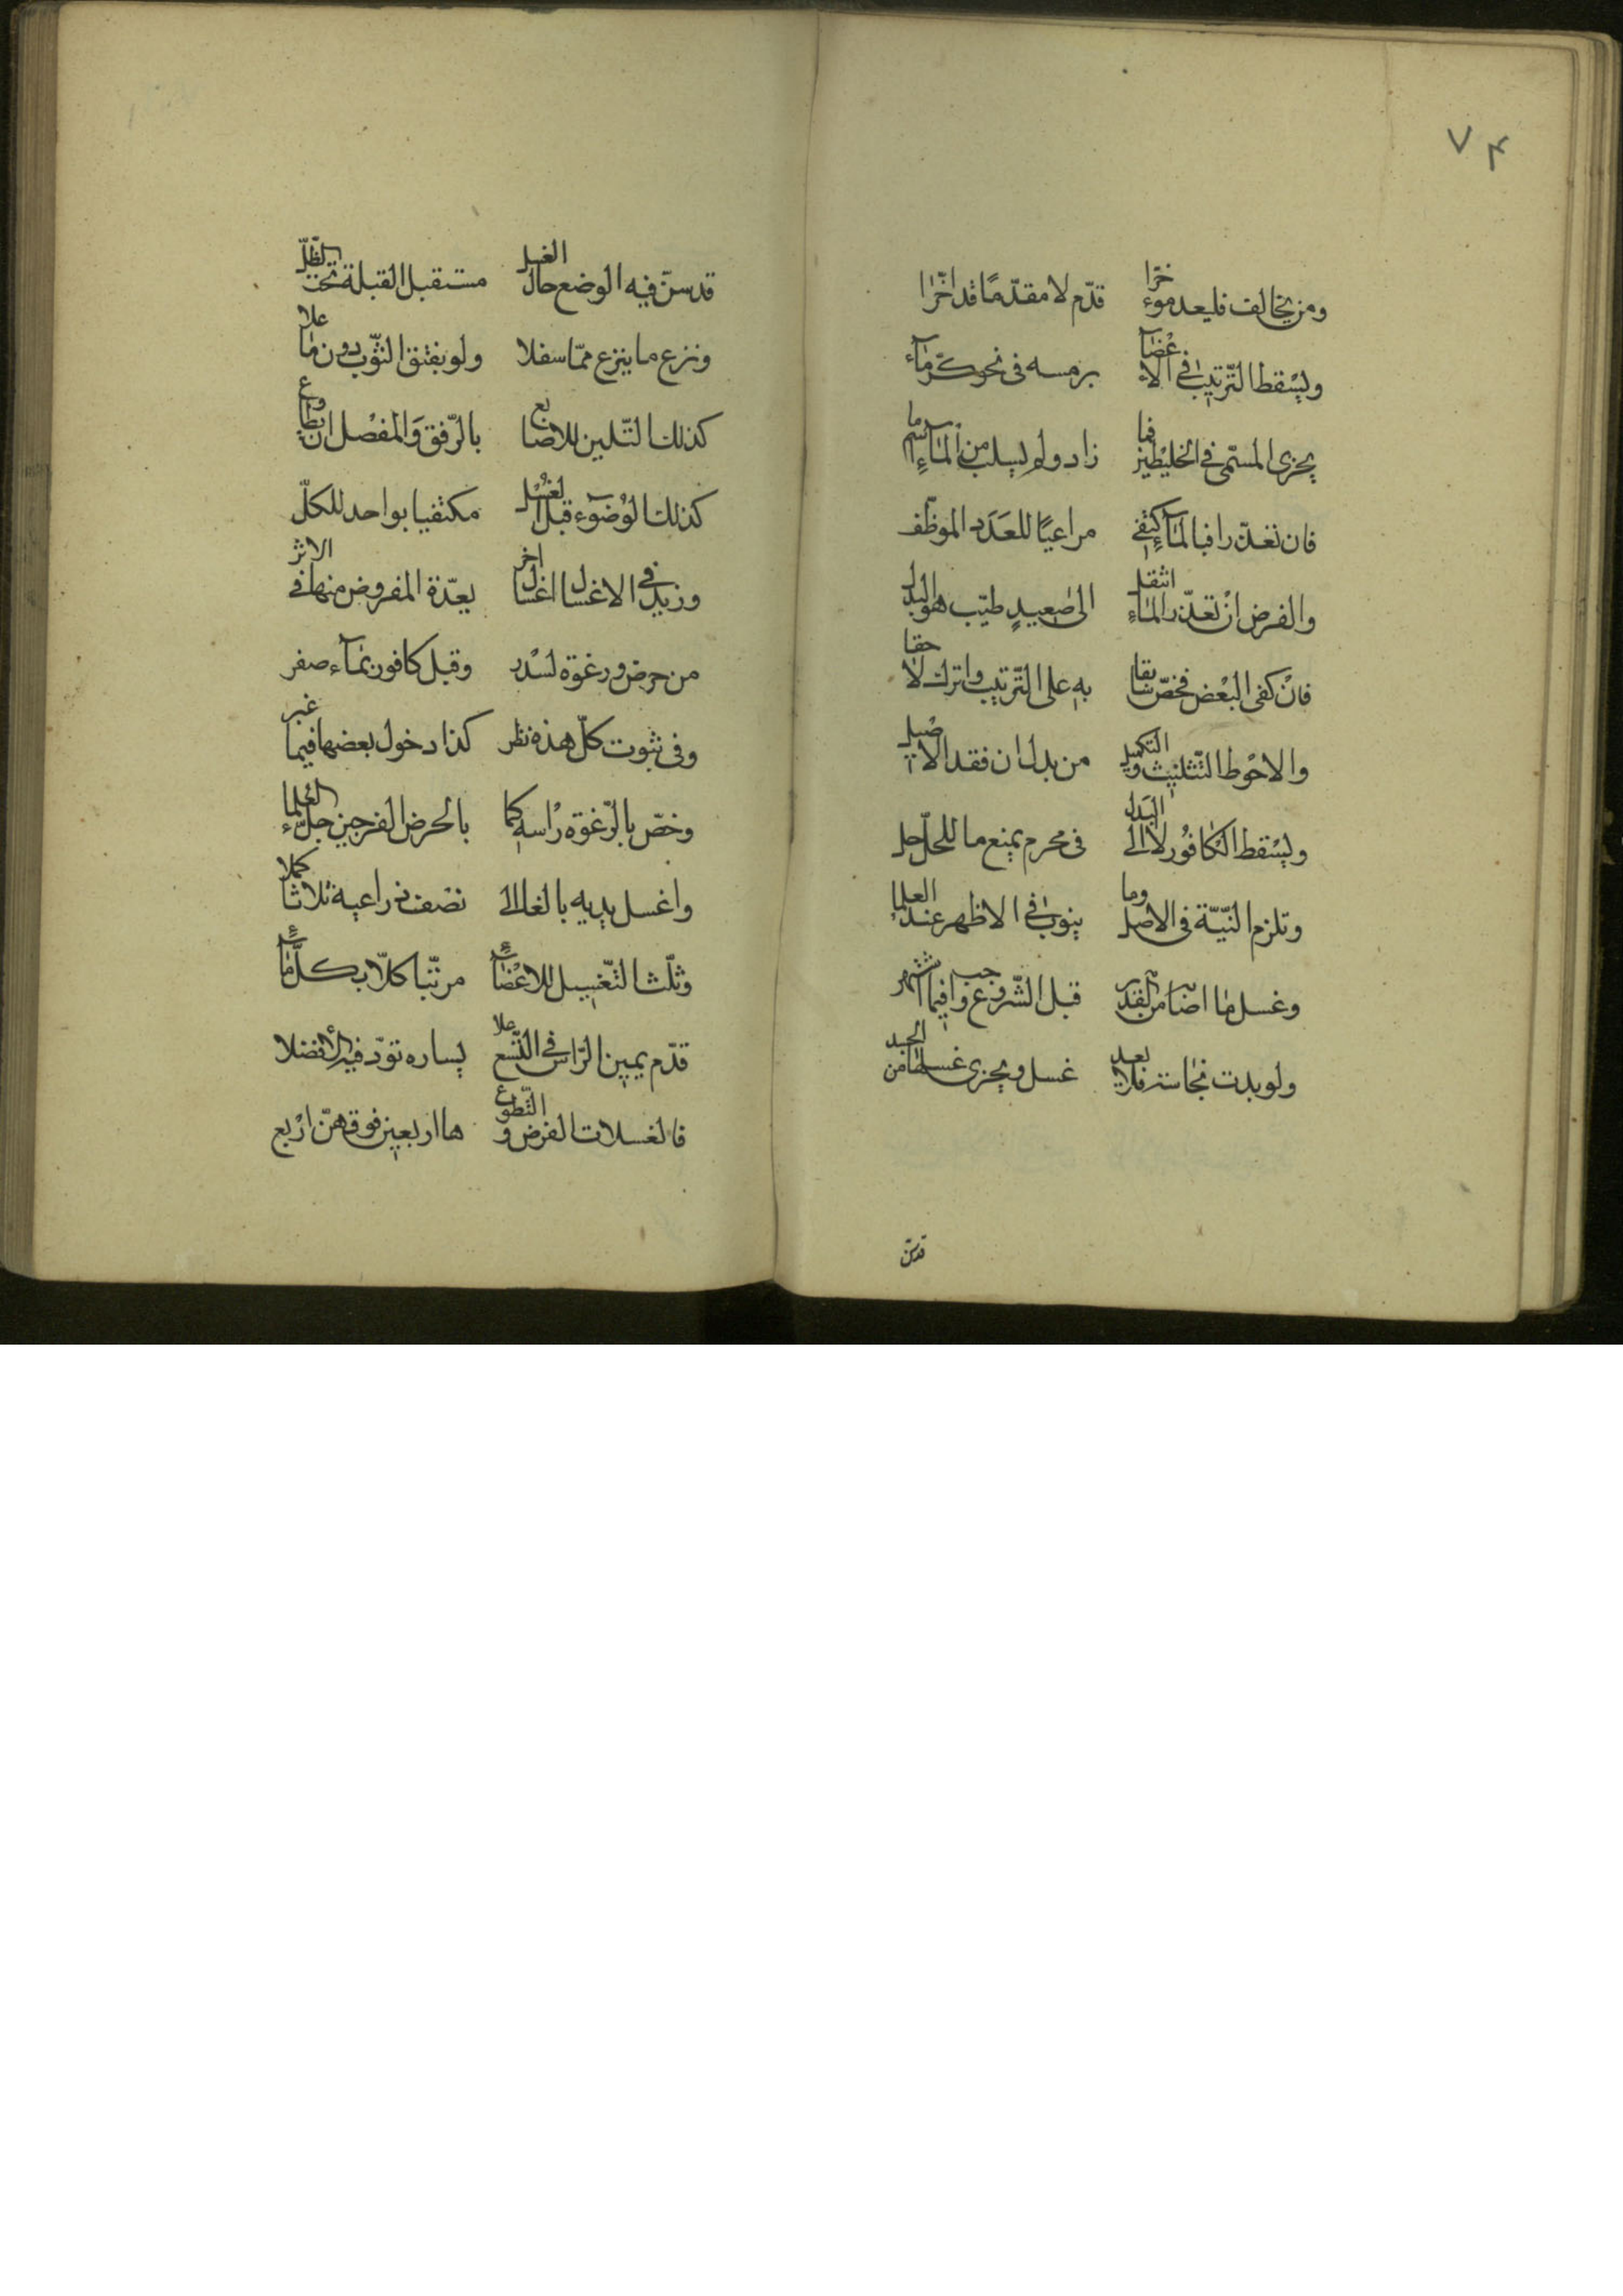 ٧٤
ومن يخالف فليعد مؤخرا قدّم لا مقدّمًا قد اخّرا
ويسْقط التّرتيب في الاعْضآء برمسه فى نحو كرّ مآء
يجزى المسمّى فى الخليطين فما زاد ولم يسلب من المآءِ سما
فان تعذّرا فبالمآءِ اكتفى مراعيًا للعَدَد الموظّف
والفرض انْ تعذّر المآءِ انتقل الى صعيدٍ طيّب هو البدل
فانْ كفى البعْض فخصّ سابقا بهِ على التّرتيب واترك لاحقا
والاحْوط التّثليث والتكميل من بدل ان فقد الاصْيل
ويسْقط الكافُور لا الى البَدل فى محرم يمنع ما للحلّ حل
وتلزم النّيّة فى الاصل وما ينوب فى الاظهر عند العلماء
وغسل ما اصابه من القذر قبل الشّروع واجب فيما اشتهر
ولو بدت نجاسة فلا يعد غسل ويجزى غسلها من الجسد
قد سنّ
قد سنّ فيه الوضع حال الغسل مستقبل القبلة تحت الظّلّ
ونزع ما ينزع ممّا سفلا ولو بفتق الثّوب دون ما علا
كذلك التّليين للاصابع بالرّفق وَالمفصْل ان يطاوع
كذلك الوُضوء قبل الغُسْل مكتفيا بواحد للكلّ
وزيد فى الاغسال اغسال اخر بعدّة المفروض منها فى الاثر
من حرض ورغوة لسدر وقبل كافور بمآء صفر
وفى ثبوت كلّ هذه نظر كذا دخول بعضها فيما غبر
وخصّ بالرّغوة رأسهِ كما بالحرض الفرجين جلّ العلماء
واغسل يديه بالغا الى نصف ذراعيه ثلاثا كملا
وثلّث التّغسيل للاعْضآءِ مرتّبا كلّا بكلّ مآءِ
قدّم يمين الرّاس فى التّسع علا يساره تؤدّ فيه الأفضلا
فالغسلات الفرض والتّطوع ها اربعين فوقهنّ ارْبع